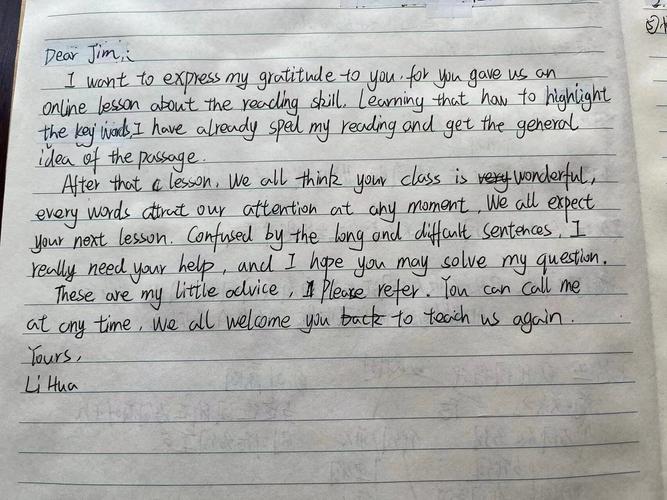 Dear Jim:
I want to express my gratitude to you, for you gave us an
online lesson about the reading skill. Learning that how to highlight
the key words, I have already sped my reading and get the general
idea of the passage.
After that a lesson, We all think your class is very wonderful,
every words attrat our attention at any moment. We all expect
your next lesson. Confused by the long and difficult sentences, I
really need your help, and I hope you may solve my question.
These are my little advice, Please refer. You can call me
at any time, We all welcome you back to teach us again.
Yours,
Li Hua